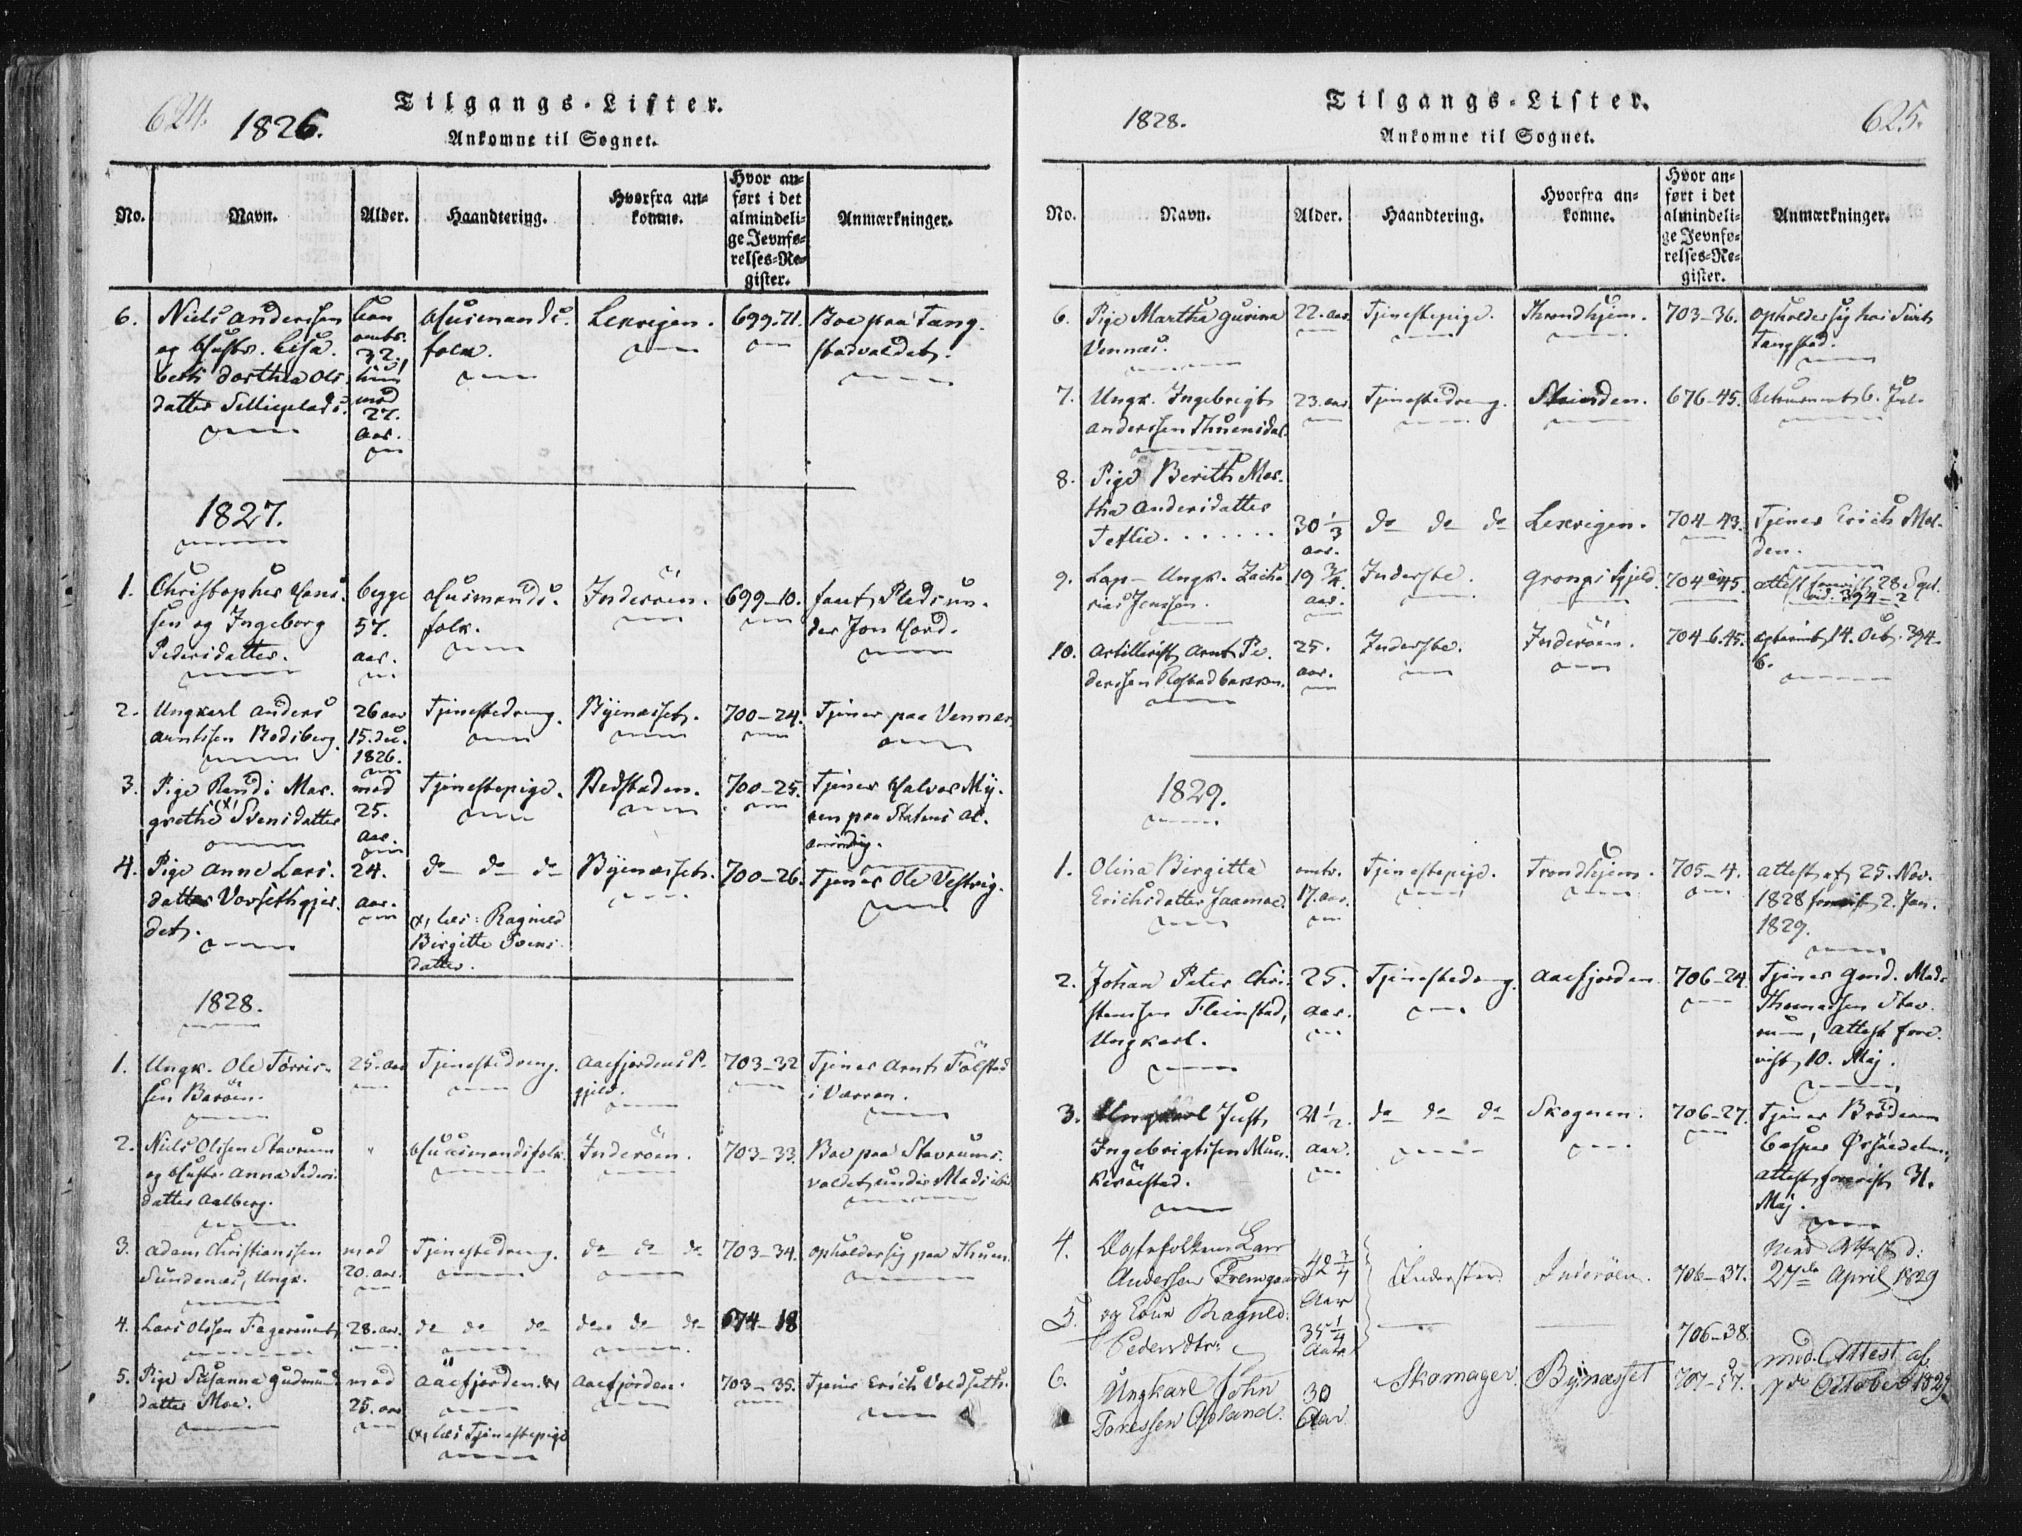 624.
1826.
Tilgangs-Lister.
Ankomne til Sognet.
No.
Navn.
Alder.
Haandtering.
Hvorfra an-
komne.
Hvor an-
ført i det
almindeli-
ge Jevnfø-
relses-Re-
gister.
Anmærkninger.
6.
Niels Anderssen
og Hustr. Elisa-
beth Dorthea Ols
datter
han
omtr.
32.
hun
mod
27.
Aar.
Huusmands-
folk.
Lexvigen.
699-71.
Boe paa Tang-
stadvaldet.
1827.
1.
Christopher Hans-
sen og Ingeborg
Pedersdatter.
begge
57.
aar.
Huusmands-
folk.
Inderöen.
699-10.
faaet Plads un-
der Jon Hord.
2.
Ungkarl Anders
Arntsen Bodsberg.
26 aar
15. Dec.
1826.
Tjenestedreng.
Byenæsset.
700-24.
Tjener paa Vennes
3.
Pige Randi Mar-
grethe (x) Svensdatter
mod
25.
aar.
Tjenestepige.
Bedstaden.
700-25.
Tjener Halvor My-
ren paa Statens Al-
minding.
4.
Pige Anne Lars-
datter Vorsethgjer-
det.
24.
aar.
do do do
(x, læs: Ragnild
Birgitte Svens-
datter.
Byenæsset.
700-26.
Tjener Ole Vestvig.
1828.
1.
Ungk. Ole Tørris-
sen Baröen.
25. aar
Tjenestedreng.
Aaefjordens P-
gjeld.
703-32
Tjener Arnt Fölstad
i Værran.
2.
Niels Olssen Stavrum
og Hustr. Anna Peders-
datter Aalberg.
"
Huusmandsfolk.
Inderöen.
703-33.
Boe paa Stavrums-
valdet under Mads ibid
3.
Adam Christianssen
Sundenæs, Ungk.
mod
20. aar.
Tjenestedreng.
do do do
703-34.
opholder sig paa Thuun
4.
Lars Olssen Fagermont
28. aar.
do do do
do do do
674-18
5.
Pige Susanna Gudmund
datter Moe.
mod
25. aar
Aaefjorden. (x)
(x, læs Tjenestepige
Aaefjorden.
703-35.
Tjener Erich Voldseth.
625.
1828.
Tilgangs-Lister.
Ankomne til Sognet.
No.
Navn.
Alder.
Haandtering.
Hvorfra an-
komne.
Hvor an-
ført i det
almindeli-
ge Jevnfø-
relses-Re-
gister.
Anmærkninger.
6.
Pige Martha Gurina
Vennæs.
22. aar.
Tjenestepige.
Throndhjem.
703-36.
opholder sig hos Sivert
Tangstad.
7.
Ungk. Ingebrigt
Anderssen
23. aar.
Tjenestedreng.
Strinden.
676-45.
6. Jul.
8.
Pige Berith Mar-
tha Andersdatter
Teflie.......
30 1/3
aar.
do do do
Lexvigen.
704-43.
Tjener Erich Mol-
den.
9.
Lap- Ungk. Zacha-
rias Jenssen.
19 3/4
aar.
Inderste.
Grongs Pgjeld.
704-a.45.
Attest foreviist 28. Sept.
vid. 394-2
10.
Artillerist Arnt Pe-
derssen Rostadbakken.
25.
aar.
Inderste.
Inderöen.
704-b.45.
14. Oct. 394-
6.
1829.
1.
Olina Birgitta
Erichsdatter Jaamoe.
omtr.
17. aar.
Tjenestepige.
Trondhjem.
705-4.
Attest af 25. Nov.
1828 foreviist 2. Jan.
1829.
2.
Johan Peter Chri-
stenssen Fleinstad,
Ungkarl.
25.
aar.
Tjenestedreng.
Aaefjorden
706-24
Tjener Gmd. Mads
Thomassen Stav-
rum, Attest fore-
viist 10. Maj.
3.
Ungkarl Just
Ingebrigtssen Mun-
keröestad.
21 1/2.
aar.
do do do
Skognen.
706-27.
Tjener Broderen
Casper
Attest foreviist 31.
Maj.
4.
Lars
Anderssen Fremgaard
42 3/4
Aar
Inderster
Inderöen.
706-37.
Med Attest d:
27de April 1829
5.
og Kone Ragnild
Pedersdtr:
35 1/4
Aar
706-38.
6.
Ungkarl John
Toressen Opland.
30
Aar
Skomager.
Bynæsset
707-57.
med Attest af
7de October 1829